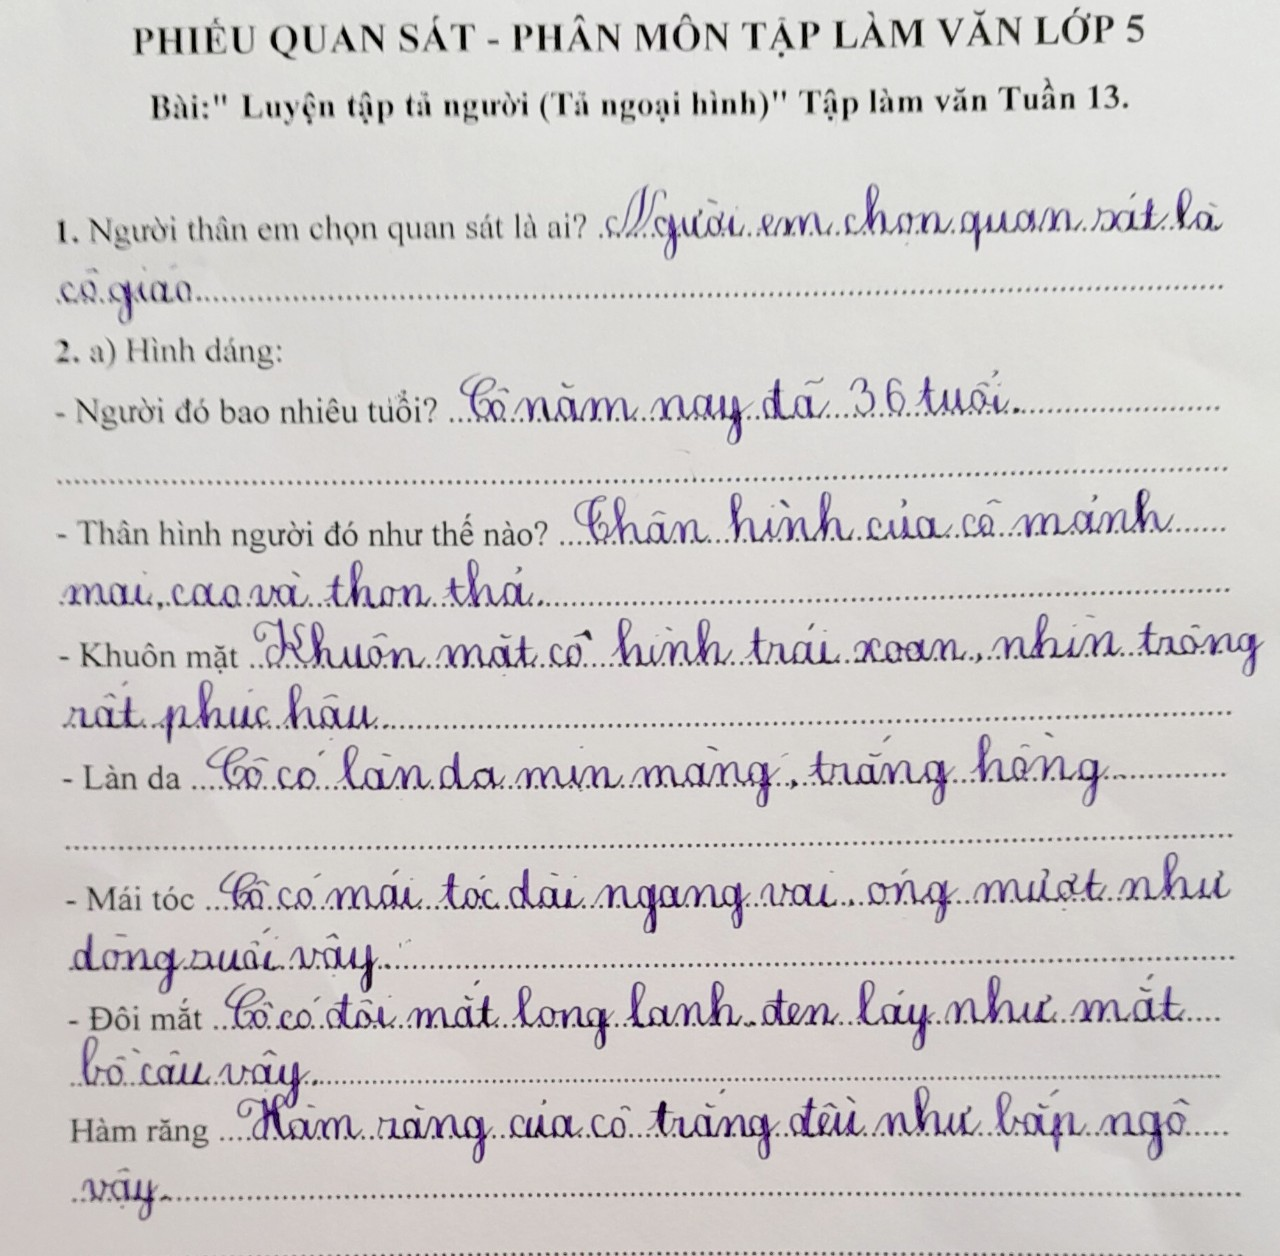 PHIẾU QUAN SÁT - PHÂN MÔN TẬP LÀM VĂN LỚP 5
Bài:" Luyện tập tả người (Tả ngoại hình)" Tập làm văn Tuần 13.
1. Người thân em chọn quan sát là ai? Người em chọn quan sát là
cô giáo
2. a) Hình dáng:
- Người đó bao nhiêu tuổi? Cô năm nay đã 36 tuổi.
- Thân hình người đó như thế nào? Thân hình của cô mảnh
mai, cao và thon thả.
- Khuôn mặt Khuôn mặt cô hình trái xoan, nhìn trông
rất phúc hậu
- Làn da Cô có làn da mịn màng, trắng hồng
- Mái tóc Cô có mái tóc dài ngang vai, óng mượt như
dòng suối vậy.
- Đôi mắt Cô có đôi mắt long lanh, đen láy như mắt
bồ câu vậy.
Hàm răng Hàm răng của cô trắng đều như bắp ngô
vậy.